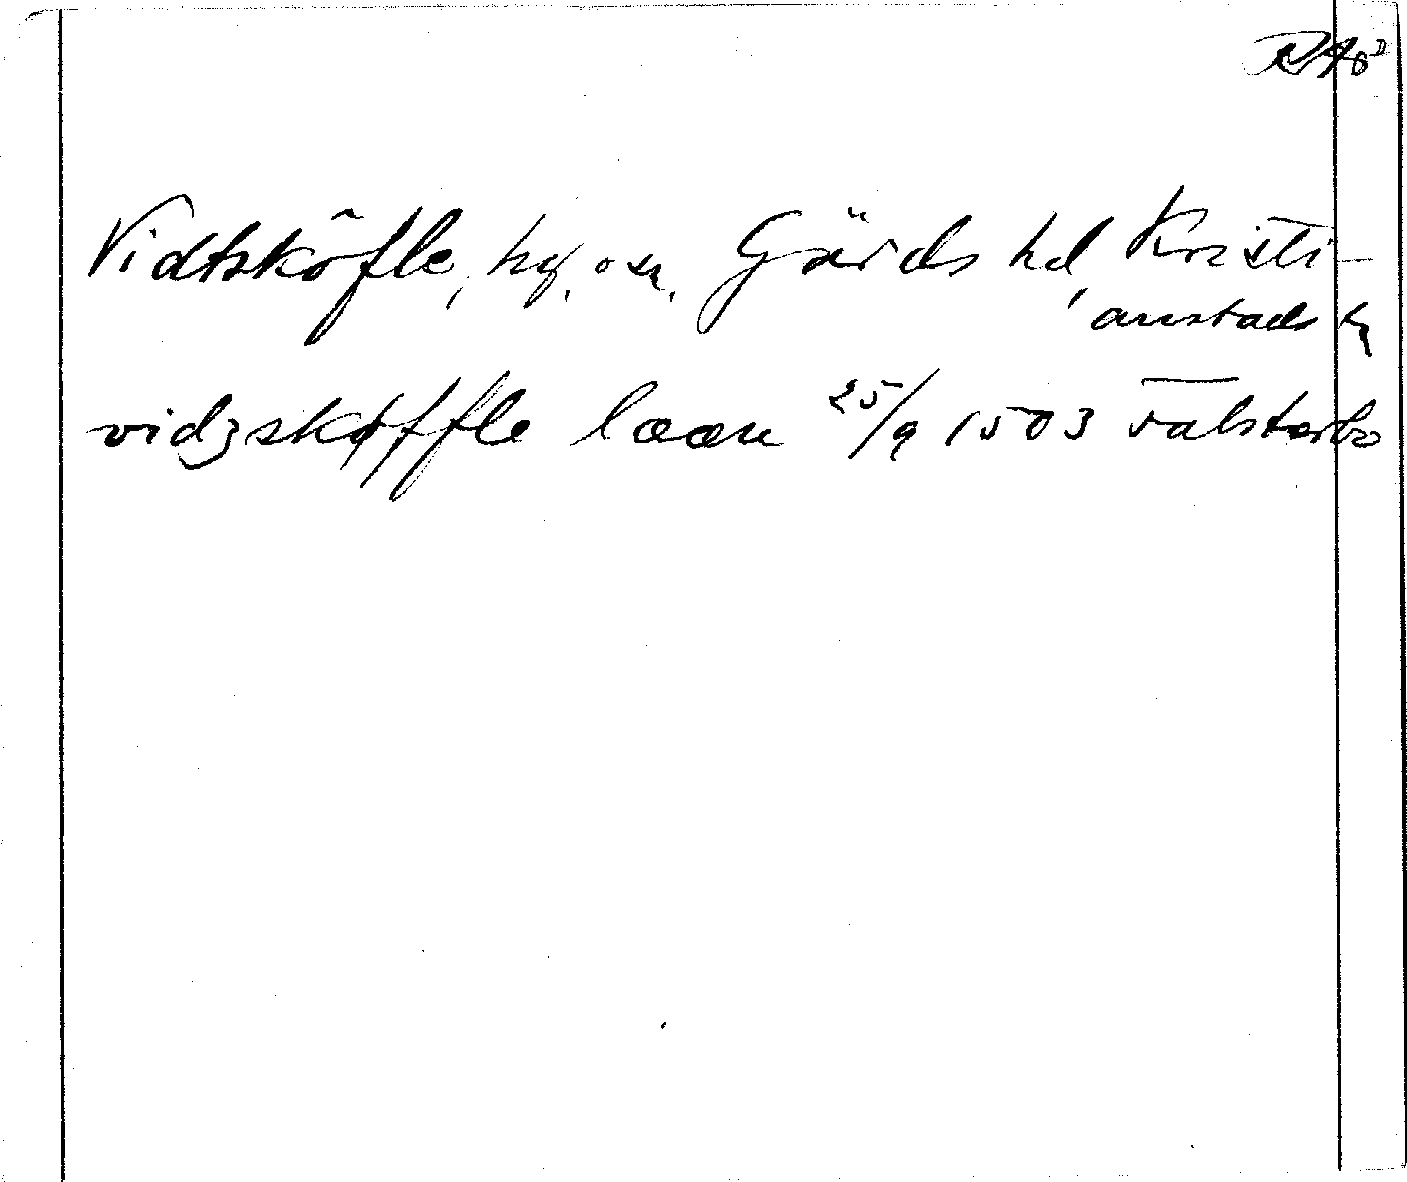 RAoᴰ
Vidtsköfle, hg. o sn. Gärds hd, Kristi-
anstads l.
vidzskøffle lææn 25/9 1503 Falsterbo